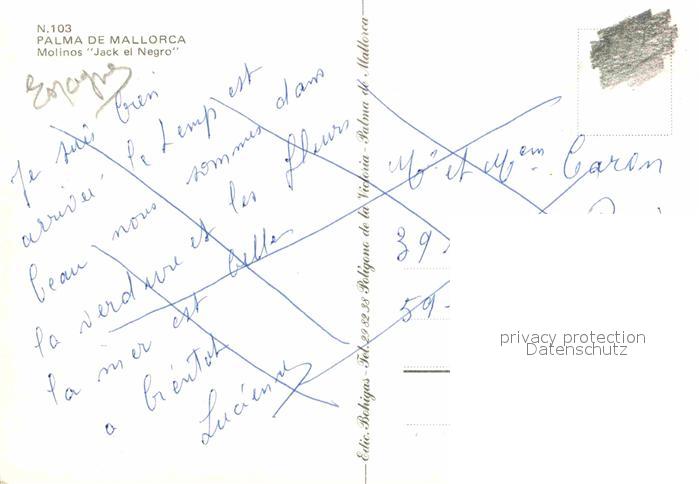 N.103
PALMA DE MALLORCA
Molinos "Jack el Negro"
Espagne
Je suis bien
arrivée le temp est
beau nous sommes dans
la verdure et les fleurs
la mer est belle
a bientot
Lucienne
Edic. Bohigas - Tel. 22 82 98 Polígono de la Victoria - Palma de Mallorca
Mr et Mem Caron
39
59-
privacy protection
Datenschutz